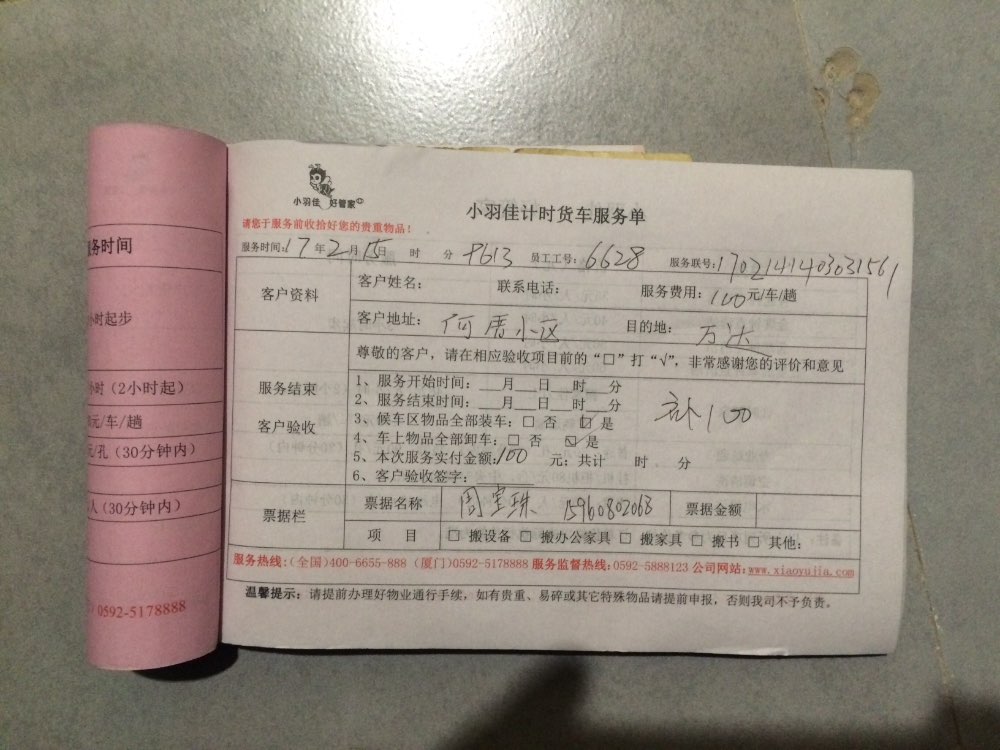 小羽佳 好管家
小羽佳计时货车服务单
请您于服务前收拾好您的贵重物品！
服务时间:17年2月15日 时 分 8613 员工工号: 6628 服务联号:1702141403031561
客户资料 客户姓名: 联系电话: 服务费用: 100元/车/趟
客户地址: 何厝小区 目的地: 万达
尊敬的客户，请在相应验收项目前的“□”打“√”，非常感谢您的评价和意见
服务结束
客户验收
1、服务开始时间: 月 日 时 分
2、服务结束时间: 月 日 时 分
3、候车区物品全部装车: □ 否 ☑ 是
4、车上物品全部卸车: □ 否 ☑ 是
5、本次服务实付金额:100 元; 共计 时 分
6、客户验收签字:
补100
票据栏 票据名称 周宝珠 15960802068 票据金额
项 目 □ 搬设备 □ 搬办公家具 □ 搬家具 □ 搬书 □ 其他:
服务热线:(全国)400-6655-888 (厦门)0592-5178888 服务监督热线:0592-5888123 公司网站:www.xiaoyujia.com
温馨提示: 请提前办理好物业通行手续，如有贵重、易碎或其它特殊物品请提前申报，否则我司不予负责。
服务时间
小时起步
小时(2小时起)
元/车/趟
元/孔(30分钟内)
人(30分钟内)
0592-5178888